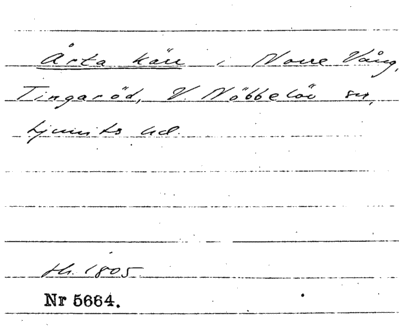 Årta kärr i Norre Vång,
Tingaröd, V. Nöbbelöv sn,
Ljunits hd
Sk. 1805
Nr 5664.